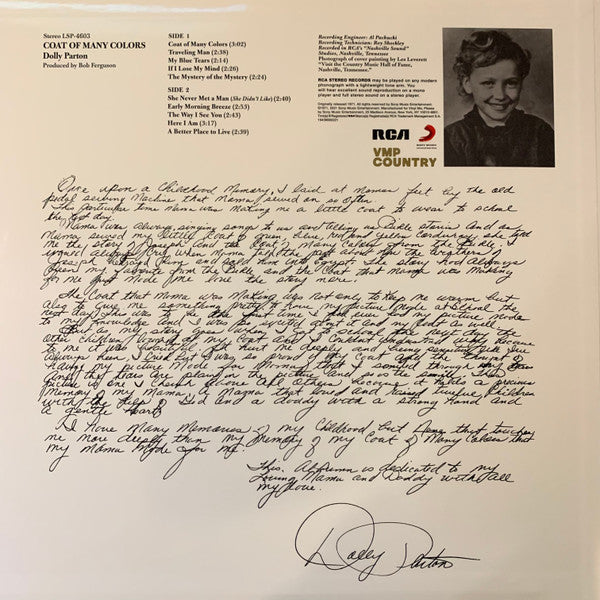 Stereo LSP-4603
COAT OF MANY COLORS
Dolly Parton
Produced by Bob Ferguson
SIDE 1
Coat of Many Colors (3:02)
Traveling Man (2:38)
My Blue Tears (2:14)
If I Lose My Mind (2:26)
The Mystery of the Mystery (2:24)
SIDE 2
She Never Met a Man (She Didn't Like) (2:40)
Early Morning Breeze (2:53)
The Way I See You (2:43)
Here I Am (3:17)
A Better Place to Live (2:39)
Recording Engineer: Al Pachucki
Recording Technician: Roy Shockley
Recorded in RCA's "Nashville Sound"
Studios, Nashville, Tennessee.
Photograph of cover painting by Les Leverett
"Visit the Country Music Hall of Fame,
Nashville, Tennessee."
RCA STEREO RECORDS may be played on any modern
phonograph with a lightweight tone arm. You
will hear excellent sound reproduction on a mono
player and full stereo sound on a stereo player.
RCA
VMP
COUNTRY
Once upon a Childhood Memory, I laid at Mamas feet by the old
pedal sewing Machine that Mama sewed on so often.
This particular time Mama was Making me a little coat to wear to school
the next day.
Mama was always singing songs to us and telling us Bible stories. And as
Mama sewed
me the story of Joseph and the Coat of Many Colors from the Bible. I
always cry when Mama the part about the brothers of
Joseph
been my favorite from the Bible and the Coat that Mama was Making
for me just Made me love the story more.
The Coat that Mama was Making was not only to keep me warm but
also to give me something pretty to have my picture Made at School the
next day. This was to be the first time I had ever had my picture Made
to my knowledge and I was so excited about it and my
But as my story goes when I got to school the next day the
other children laughed at my Coat and I couldn't understand why because
to me it was beautiful. It hurt me deeply and being sensitive like I've
always been, I cried but I was so proud of my Coat and the thought of
having my picture Made for Momma that I smiled through
And the tears are plain in the picture and so is the smile. The
picture is one I cherish above all others because it holds a precious
Memory of my Mama. A Mama that loved and raised twelve children
with the help of God and a daddy with a strong hand and
a gentle heart.
I have Many Memories of my childhood but none that touches
me more deeply than my Memory of my Coat of Many Colors that
my Mama Made for me.
This Album is dedicated to my
Loving Mama and Daddy with all
my love.
Dolly Parton